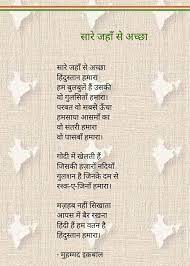 सारे जहाँ से अच्छा
सारे जहाँ से अच्छा
हिंदुस्तान हमारा
हम बुलबुले हैं उसकी
वो गुलसिताँ हमारा।
परबत वो सबसे ऊँचा
हमसाया आसमाँ का
वो संतरी हमारा
वो पासबाँ हमारा।
गोदी में खेलती हैं
जिसकी हज़ारों नदियाँ
गुलशन है जिनके दम से
रश्क-ए-जिनाँ हमारा।
मज़हब नहीं सिखाता
आपस में बैर रखना
हिंदी हैं हम वतन है
हिंदुस्तान हमारा।
- मुहम्मद इक़बाल